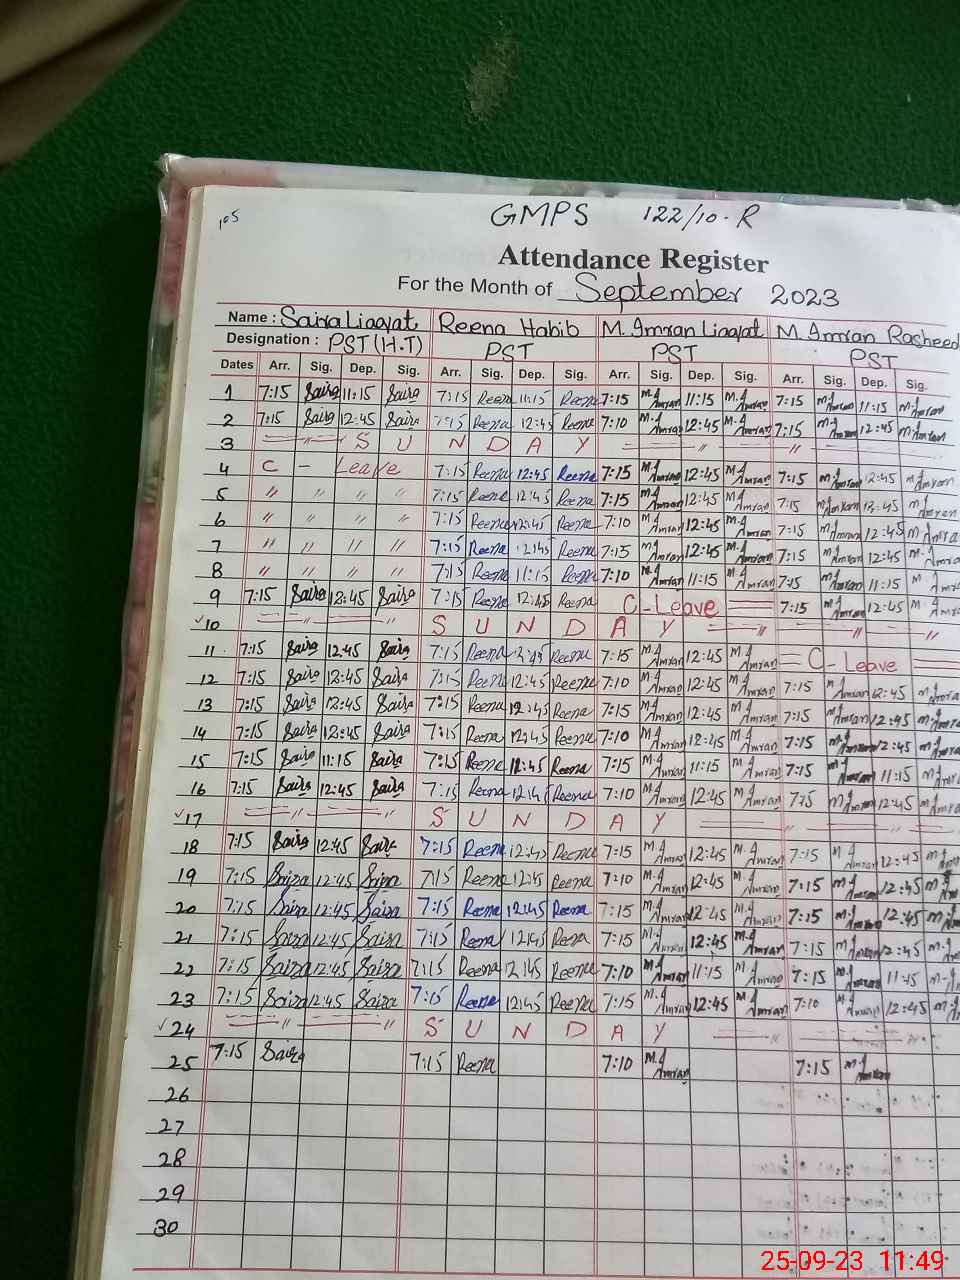 105
GMPS 122/10-R
Attendance Register
For the Month of September 2023
Name : Saira Liaqat Reena Habib M. Imran Liaqat M. Imran Rasheed
Designation : PST (H.T) PST PST PST
Dates Arr. Sig. Dep. Sig. Arr. Sig. Dep. Sig. Arr. Sig. Dep. Sig. Arr. Sig. Dep. Sig.
1 7:15 Saira 11:15 Saira 7:15 Reena 11:15 Reena 7:15 M.Imran 11:15 M.Imran 7:15 M.Imran 11:15 M.Imran
2 7:15 Saira 12:45 Saira 7:15 Reena 12:45 Reena 7:10 M.Imran 12:45 M.Imran 7:15 M.Imran 12:45 M.Imran
3 〃 S U N D A Y 〃 〃
4 C - Leave 7:15 Reena 12:45 Reena 7:15 M.Imran 12:45 M.Imran 7:15 M.Imran 12:45 M.Imran
5 〃 〃 〃 〃 7:15 Reena 12:45 Reena 7:15 M.Imran 12:45 M.Imran 7:15 M.Imran 12:45 M.Imran
6 〃 〃 〃 〃 7:15 Reena 12:45 Reena 7:10 M.Imran 12:45 M.Imran 7:15 M.Imran 12:45 M.Imran
7 〃 〃 〃 〃 7:15 Reena 12:45 Reena 7:15 M.Imran 12:45 M.Imran 7:15 M.Imran 12:45 M.Imran
8 〃 〃 〃 〃 7:15 Reena 11:15 Reena 7:10 M.Imran 11:15 M.Imran 7:15 M.Imran 11:15 M.Imran
9 7:15 Saira 12:45 Saira 7:15 Reena 12:45 Reena C-Leave 7:15 M.Imran 12:45 M.Imran
10 〃 〃 S U N D A Y 〃 〃 〃
11 7:15 Saira 12:45 Saira 7:15 Reena 12:45 Reena 7:15 M.Imran 12:45 M.Imran C-Leave
12 7:15 Saira 12:45 Saira 7:15 Reena 12:45 Reena 7:10 M.Imran 12:45 M.Imran 7:15 M.Imran 12:45 M.Imran
13 7:15 Saira 12:45 Saira 7:15 Reena 12:45 Reena 7:15 M.Imran 12:45 M.Imran 7:15 M.Imran 12:45 M.Imran
14 7:15 Saira 12:45 Saira 7:15 Reena 12:45 Reena 7:10 M.Imran 12:45 M.Imran 7:15 M.Imran 12:45 M.Imran
15 7:15 Saira 11:15 Saira 7:15 Reena Reena 7:15 M.Imran 11:15 M.Imran 7:15 M.Imran 11:15 M.Imran
16 7:15 Saira 12:45 Saira 7:15 Reena 12:45 Reena 7:10 M.Imran 12:45 M.Imran 7:15 M.Imran 12:45 M.Imran
17 〃 〃 S U N D A Y 〃 〃 〃
18 7:15 Saira 12:45 Saira 7:15 Reena 12:45 Reena 7:15 M.Imran 12:45 M.Imran 7:15 M.Imran 12:45
19 7:15 Saira 12:45 Saira 7:15 Reena 12:45 Reena 7:10 M.Imran 12:45 M.Imran 7:15 M.Imran 12:45
20 7:15 Saira 12:45 Saira 7:15 Reena 12:45 Reena 7:15 M.Imran 12:45 M.Imran 7:15 M.Imran 12:45
21 7:15 Saira 12:45 Saira 7:15 Reena 12:45 Reena 7:15 M.Imran 12:45 M.Imran 7:15 M.Imran 12:45
22 7:15 Saira 12:45 Saira 7:15 Reena 12:45 Reena 7:10 M.Imran 11:15 M.Imran 7:15 M.Imran 11:15
23 7:15 Saira 12:45 Saira 7:15 Reena 12:45 Reena 7:15 M.Imran 12:45 M.Imran 7:10 M.Imran 12:45
24 〃 〃 S U N D A Y 〃
25 7:15 Saira 7:15 Reena 7:10 M.Imran 7:15 M.Imran
26
27
28
29
30
25-09-23 11:49